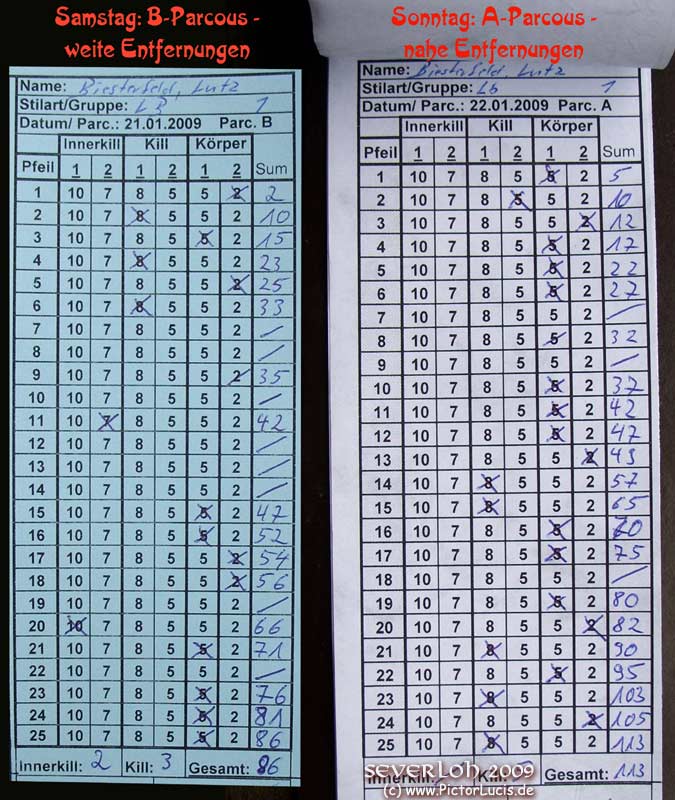 Samstag: B-Parcous -
weite Entfernungen
Name: Biesterfeld, Lutz
Stilart/Gruppe: LB 1
Datum/ Parc.: 21.01.2009 Parc. B
Innerkill Kill Körper
Pfeil 1 2 1 2 1 2 Sum
1 10 7 8 5 5 2 2
2 10 7 8 5 5 2 10
3 10 7 8 5 5 2 15
4 10 7 8 5 5 2 23
5 10 7 8 5 5 2 25
6 10 7 8 5 5 2 33
7 10 7 8 5 5 2 /
8 10 7 8 5 5 2 /
9 10 7 8 5 5 2 35
10 10 7 8 5 5 2 /
11 10 7 8 5 5 2 42
12 10 7 8 5 5 2 /
13 10 7 8 5 5 2 /
14 10 7 8 5 5 2 /
15 10 7 8 5 5 2 47
16 10 7 8 5 5 2 52
17 10 7 8 5 5 2 54
18 10 7 8 5 5 2 56
19 10 7 8 5 5 2 /
20 10 7 8 5 5 2 66
21 10 7 8 5 5 2 71
22 10 7 8 5 5 2 /
23 10 7 8 5 5 2 76
24 10 7 8 5 5 2 81
25 10 7 8 5 5 2 86
Innerkill: 2 Kill: 3 Gesamt: 86
Sonntag: A-Parcous -
nahe Entfernungen
Name: Biesterfeld, Lutz
Stilart/Gruppe: LB 1
Datum/ Parc.: 22.01.2009 Parc. A
Innerkill Kill Körper
Pfeil 1 2 1 2 1 2 Sum
1 10 7 8 5 5 2 5
2 10 7 8 5 5 2 10
3 10 7 8 5 5 2 12
4 10 7 8 5 5 2 17
5 10 7 8 5 5 2 22
6 10 7 8 5 5 2 27
7 10 7 8 5 5 2 /
8 10 7 8 5 5 2 32
9 10 7 8 5 5 2 /
10 10 7 8 5 5 2 37
11 10 7 8 5 5 2 42
12 10 7 8 5 5 2 47
13 10 7 8 5 5 2 49
14 10 7 8 5 5 2 57
15 10 7 8 5 5 2 65
16 10 7 8 5 5 2 70
17 10 7 8 5 5 2 75
18 10 7 8 5 5 2 /
19 10 7 8 5 5 2 80
20 10 7 8 5 5 2 82
21 10 7 8 5 5 2 90
22 10 7 8 5 5 2 95
23 10 7 8 5 5 2 103
24 10 7 8 5 5 2 105
25 10 7 8 5 5 2 113
Innerkill: Kill: Gesamt: 113
severLoh 2009
(c) www.PictorLucis.de